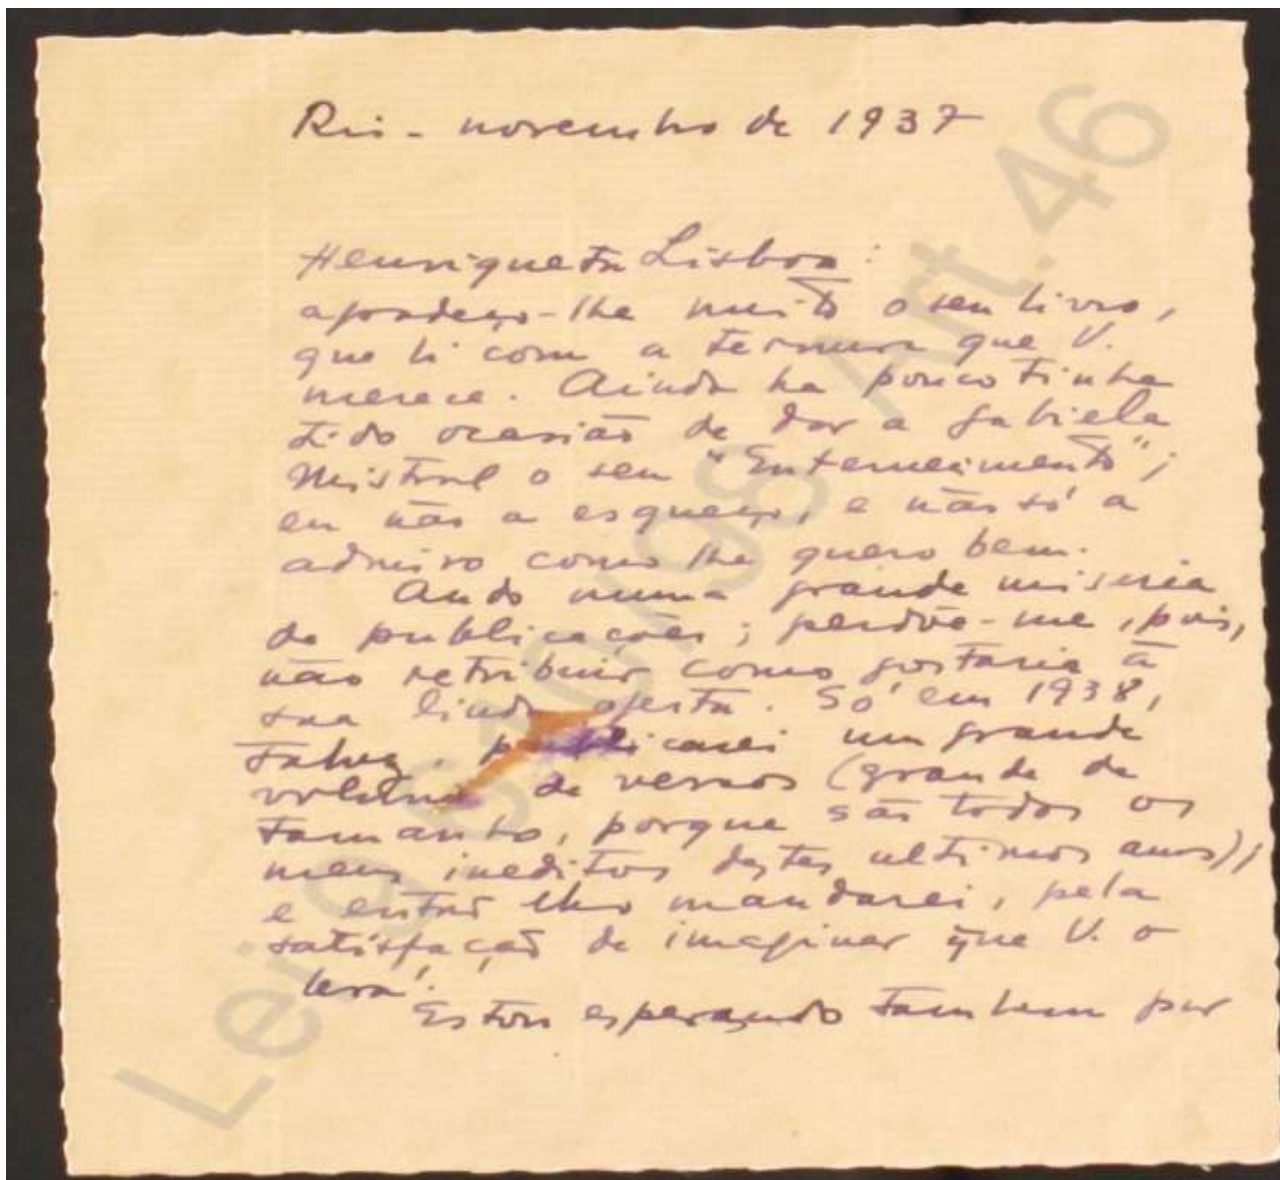 Rio - novembro de 1937
Henriqueta Lisboa:
agradeço-lhe muito o seu livro,
que li com a ternura que V.
merece. Ainda ha pouco tinha
tido ocasião de dar a Gabriela
Mistral o seu "Enternecimento";
eu não a esqueço, e não só a
admiro como lhe quero bem.
Ando numa grande miseria
de publicações; perdôe-me, pois,
não retribuir como gostaria à
sua linda oferta. Só em 1938,
talvez, publicarei um grande
volume de versos (grande de
tamanho, porque são todos os
meus ineditos destes ultimos anos);
e então lho mandarei, pela
satisfação de imaginar que V. o
lerá.
Estou esperando tambem por
Lei 9610/98 Art. 46